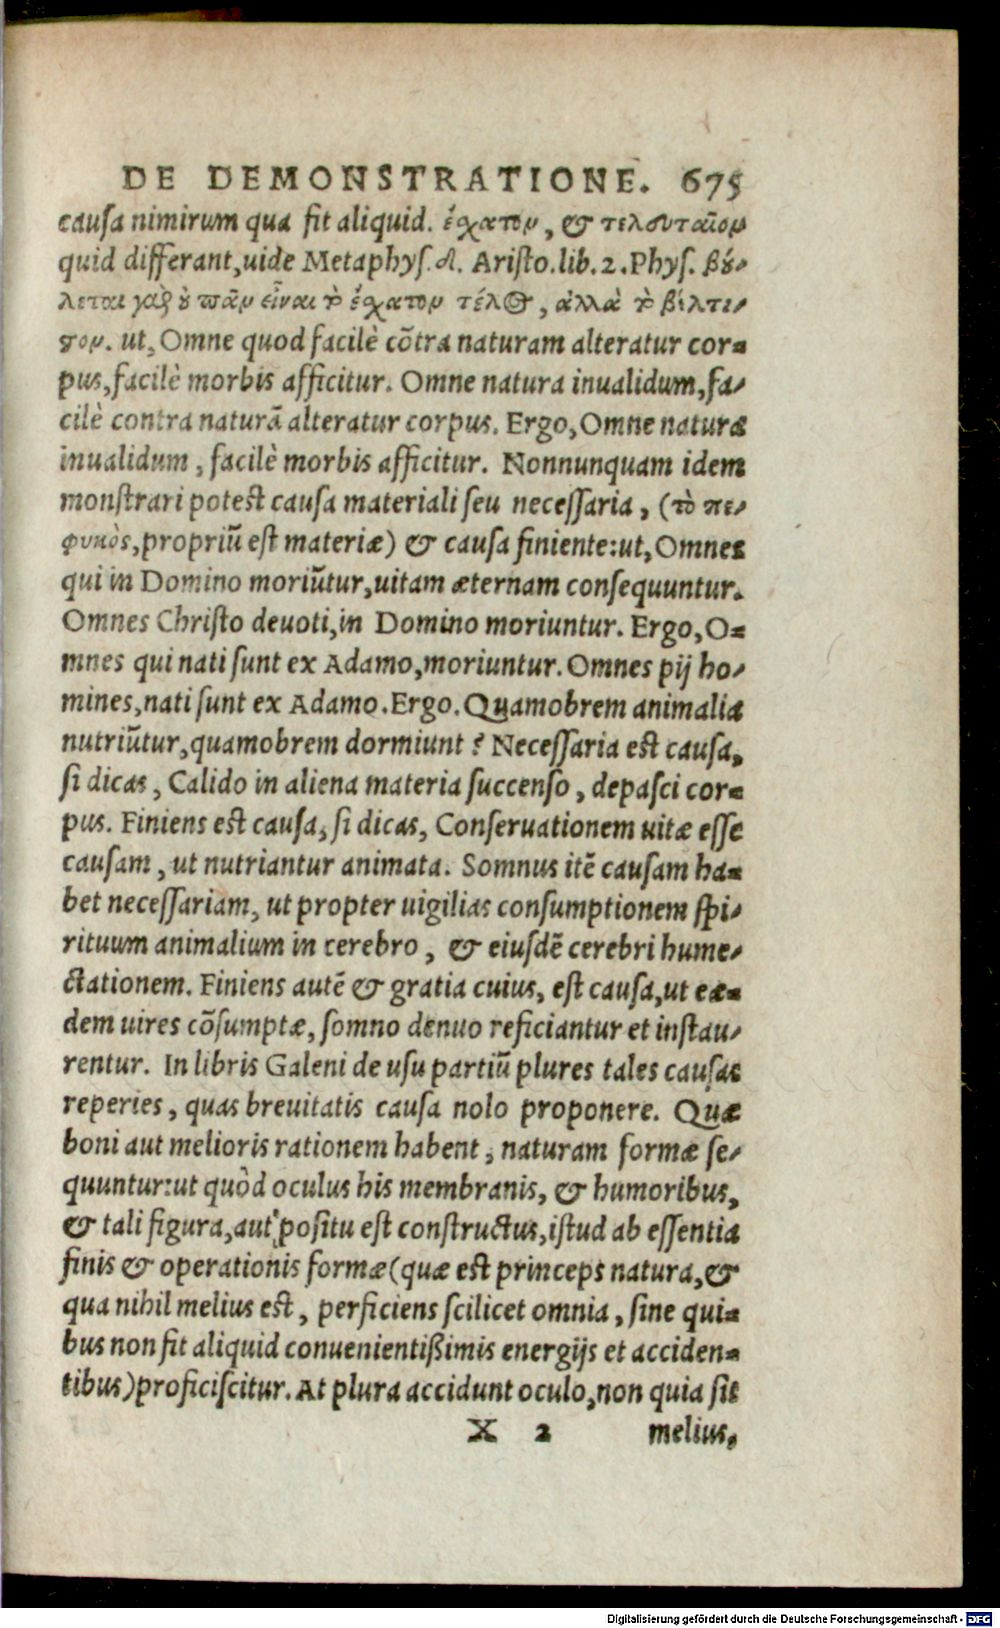 DE DEMONSTRATIONE. 675
causa nimirum qua fit aliquid. ἔσχατον, & τελευταῖον
quid differant, uide Metaphys. δ. Aristo. lib. 2. Phys. βού-
λεται γὰρ οὐ πᾶν εἶναι τὸ ἔσχατον τέλος, ἀλλὰ τὸ βέλτι-
στον. ut, Omne quod facilè cōtra naturam alteratur cor-
pus, facilè morbis afficitur. Omne natura inualidum, fa-
cilè contra naturā alteratur corpus. Ergo, Omne natura
inualidum, facilè morbis afficitur. Nonnunquam idem
monstrari potest causa materiali seu necessaria, (τὸ πε-
φυκὸς, propriū est materiæ) & causa finiente: ut, Omnes
qui in Domino moriūtur, uitam æternam consequuntur.
Omnes Christo deuoti, in Domino moriuntur. Ergo, O-
mnes qui nati sunt ex Adamo, moriuntur. Omnes pij ho-
mines, nati sunt ex Adamo. Ergo. Quamobrem animalia
nutriūtur, quamobrem dormiunt? Necessaria est causa,
si dicas, Calido in aliena materia succenso, depasci cor-
pus. Finiens est causa, si dicas, Conseruationem uitæ esse
causam, ut nutriantur animata. Somnus itē causam ha-
bet necessariam, ut propter uigilias consumptionem spi-
rituum animalium in cerebro, & eiusdē cerebri hume-
ctationem. Finiens autē & gratia cuius, est causa, ut eæ-
dem uires cōsumptæ, somno denuo reficiantur et instau-
rentur. In libris Galeni de usu partiū plures tales causas
reperies, quas breuitatis causa nolo proponere. Quæ
boni aut melioris rationem habent, naturam formæ se-
quuntur: ut quòd oculus his membranis, & humoribus,
& tali figura, aut positu est constructus, istud ab essentia
finis & operationis formæ (quæ est princeps natura, &
qua nihil melius est, perficiens scilicet omnia, sine qui-
bus non fit aliquid conuenientißimis energijs et acciden-
tibus) proficiscitur. At plura accidunt oculo, non quia sit
X 2 melius,
Digitalisierung gefördert durch die Deutsche Forschungsgemeinschaft - DFG